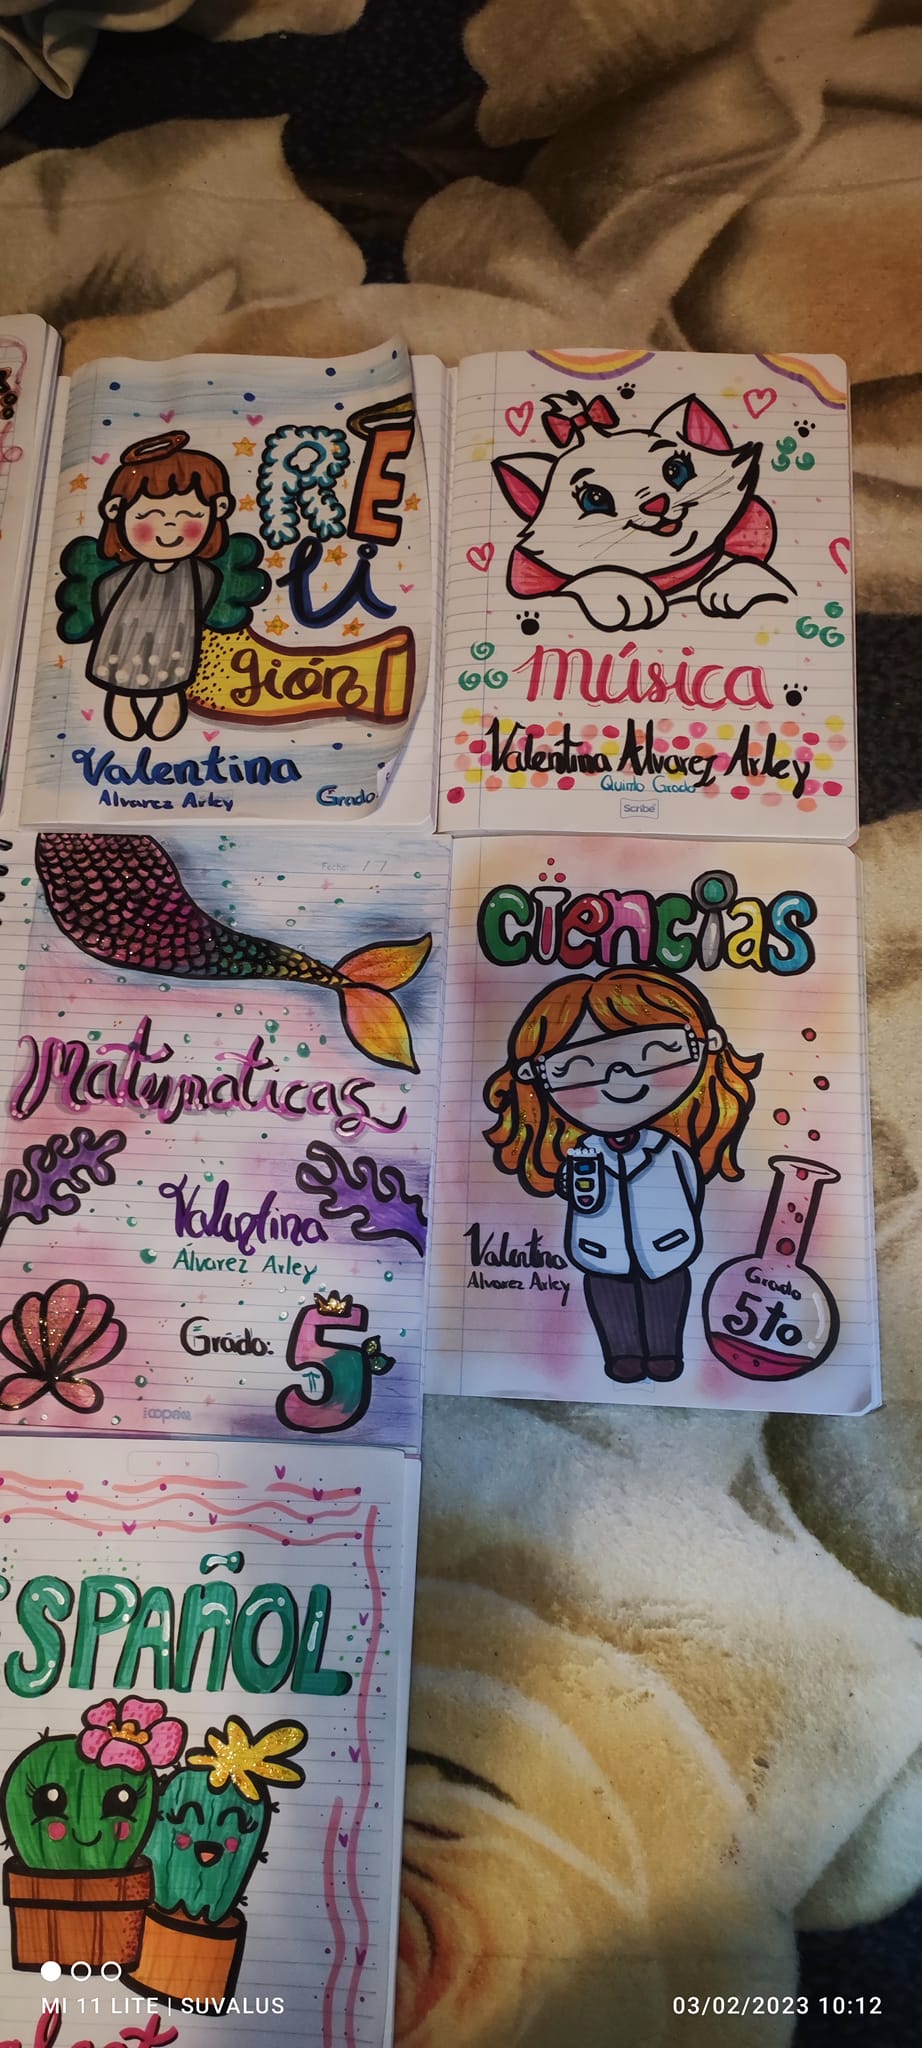 RE
li
gión
Valentina
Alvarez Arley
Grado:
música
Valentina Álvarez Arley
Quinto Grado
Scribe
Fecha: / /
Matematicas
Valentina
Álvarez Arley
Grado: 5
ciencias
Valentina
Alvarez Arley
Grado
5to
ESPAÑOL
MI 11 LITE | SUVALUS
03/02/2023 10:12